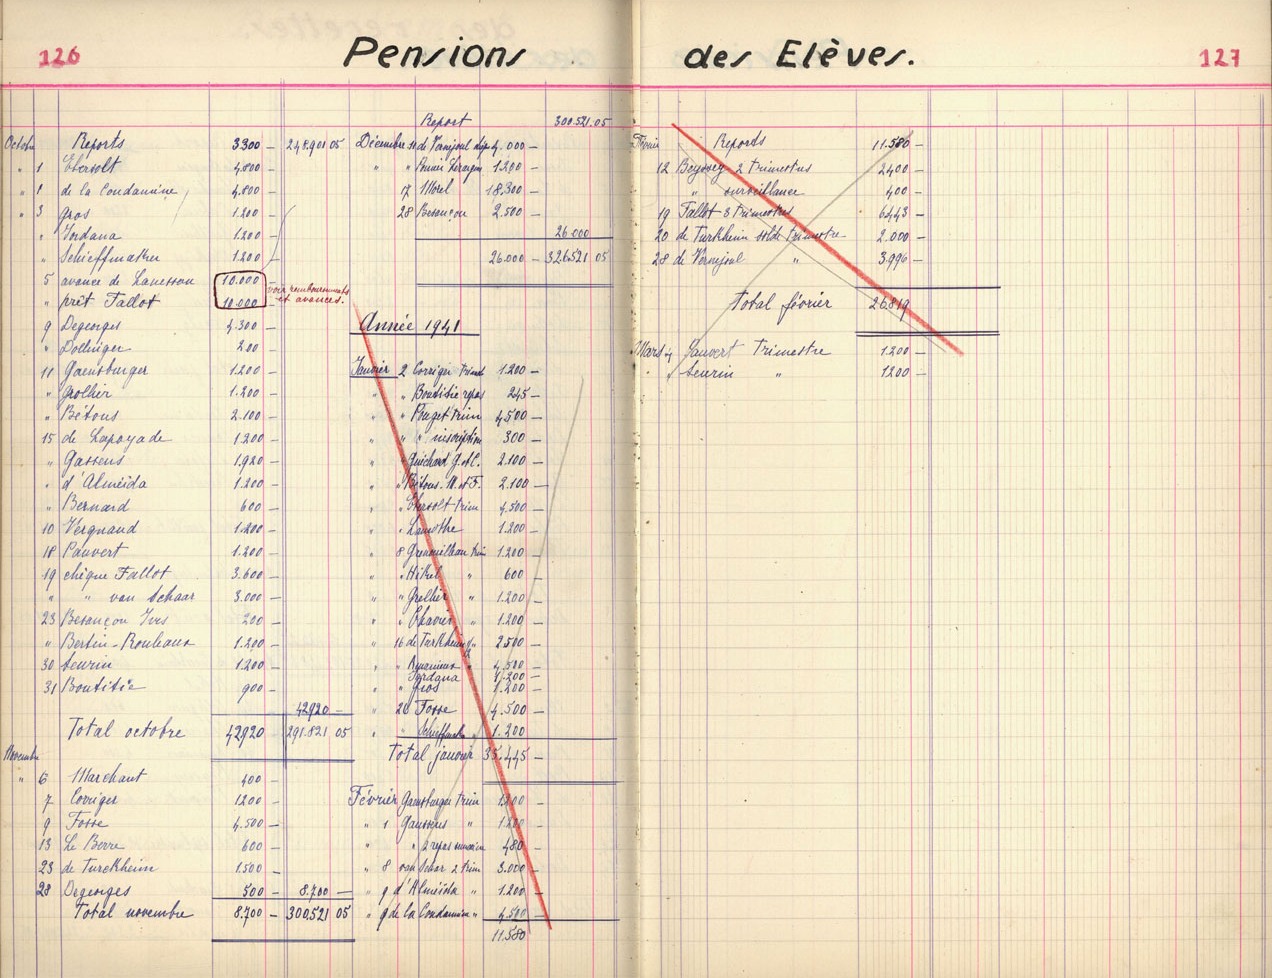 126
Pensions des Elèves.
127
Octobre Reports 3300 - 248.901 05
" 1 Ebersolt 4.800 -
" 1 de la Condamine 4.800 -
" 3 Gros 1.200 -
" Jordana 1.200 -
" Schieffmacher 1200 -
5 avance de Lanessan 10.000 -
" prêt Fallot 10.000 -
voir remboursements et avances.
9 Degeorges 4.300 -
" Dollinger 200 -
11 Gaensburger 1.200 -
" Grollier 1.200 -
" Bétous 2.100 -
15 de Lapoyade 1.200 -
" Gassens 1.920 -
" d'Alméida 1.200 -
" Bernard 600 -
10 Vergnaud 1.200 -
18 Pauvert 1.200 -
19 chèque Fallot 3.600 -
" " van Schaar 3.000 -
23 Besançon Yves 200 -
" Bertin-Rouleaux 1.200 -
30 Seurin 1.200 -
31 Boutitie 900 -
42920 -
Total octobre 42920 - 291.821 05
Novembre
" 6 Marchant 400 -
7 Corriger 1200 -
9 Fosse 4.500 -
13 Le Berre 600 -
23 de Turckheim 1.500 -
28 Degeorges 500 - 8.700 -
Total novembre 8.700 - 300.521 05
Report 300.521.05
Décembre 11 de Vernejoul 4.000 -
" " 1.200 -
17 Morel 18.300 -
28 Besançon 2.500 -
26.000
26.000 - 326.521 05
Année 1941
Janvier 2 Corriger trimest 1.200 -
" " Boutitie repas 245 -
" " Puget trim 4.500 -
" " " inscription 300 -
" " Guichard G. et C. 2.100 -
" " Bétous. M. et F. 2.100 -
" " Ebersolt trim 4.500 -
" " Lamothe 1.200 -
" 8 Grenouilleau trim 1.200 -
" " Hikel " 600 -
" " Grollier " 1.200 -
" " Chavier " 1.200 -
" 16 de Turkheim " 2500 -
" " " 4.500 -
Jordana 1.200 -
" " Gros 1.200 -
" 20 Fosse 4.500 -
" " Schieffmach " 1.200 -
Total janvier 35.445 -
Février Gaensburger trim 1.200 -
" 1 Gaussens " 1.200 -
" " " repas semaine 480 -
" 8 van Schaar 2 trim 3.000 -
" 9 d'Alméida " 1.200 -
" 9 de la Condamine " 4.500 -
11.580
Février Reports 11.580 -
12 Beyssey 2 trimestres 2400 -
" surveillance 400 -
19 Fallot 3 trimestres 6443 -
20 de Turkheim solde trimestre 2.000 -
28 de Vernejoul " 3.996 -
Total février 26.819
Mars 4 Pauvert Trimestre 1.200 -
" " Seurin " 1200 -